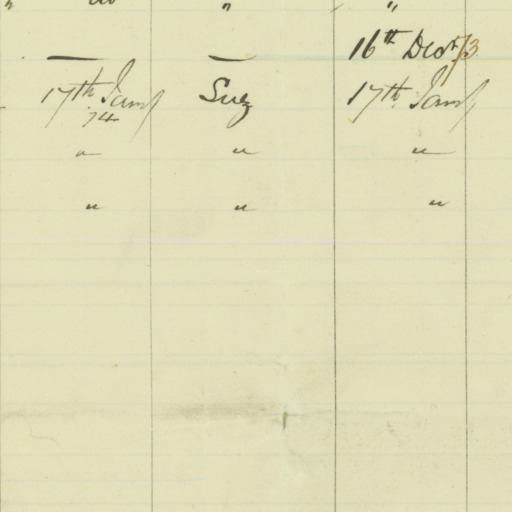 " do " "
— — 16th Decr 73
17th Jany Suez 17th Jany
74
" " "
" " "